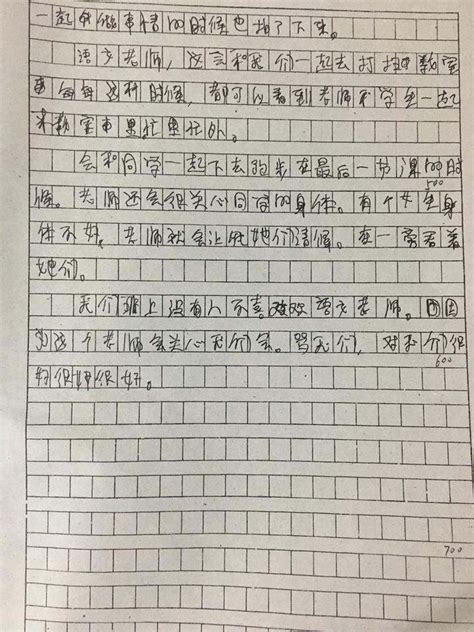 一起做事情的时候也拍了下来。
语文老师，还会和我们一起去打扫教室
每每这种时候，都可以看到老师和学生一起
来教室里忙里忙外。
会和同学一起下去跑步在最后一节课的时
500
候。老师还会很关心同学的身体。有个女生身
体不好，老师就会让他她们请假。在一旁看着
她们。
我们班上没有人不喜欢语文老师。因
为这个老师会关心我们会。骂我们，对我们很
600
好很好很好。
700